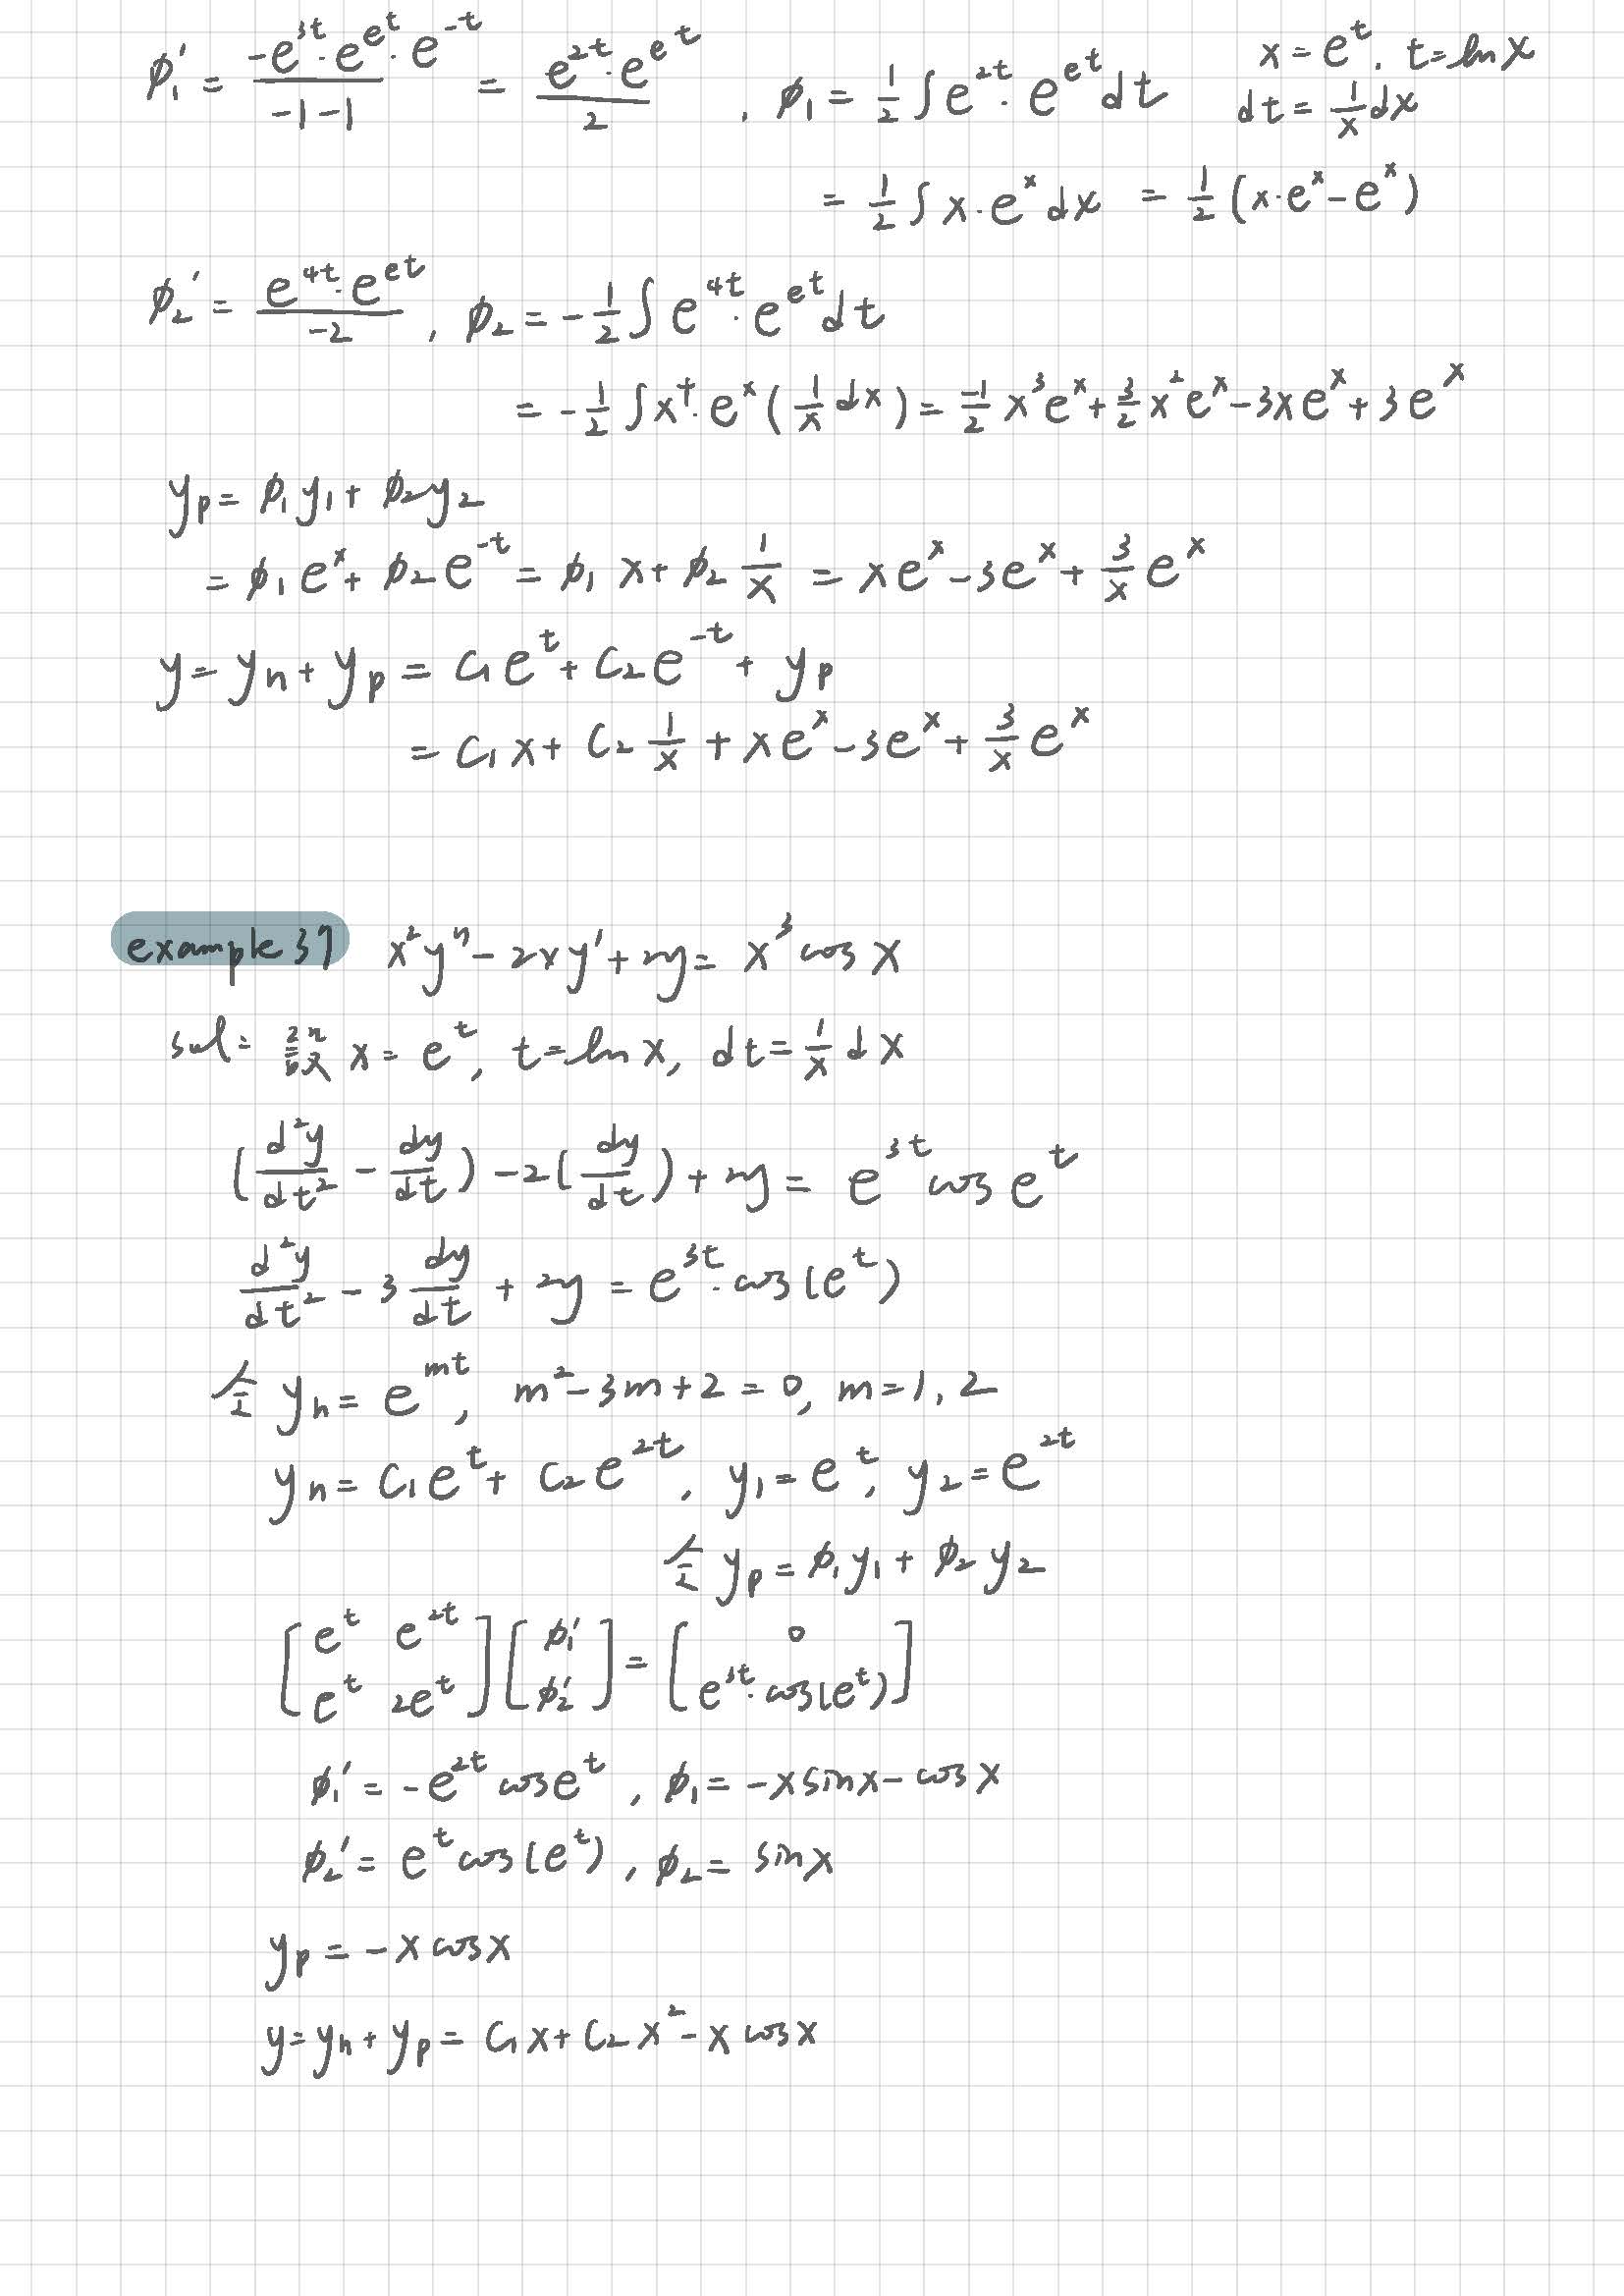 ϕ₁' = (-e^{3t}·e^{e^t}·e^{-t})/(-1-1) = (e^{2t}·e^{e^t})/2 , ϕ₁ = 1/2 ∫e^{2t}·e^{e^t}dt x=e^t. t=ln x
dt = 1/x dx
= 1/2 ∫x·e^x dx = 1/2 (x·e^x - e^x)
ϕ₂' = (e^{4t}·e^{e^t})/(-2) , ϕ₂ = -1/2 ∫e^{4t}·e^{e^t}dt
= -1/2 ∫x⁴·e^x (1/x dx) = -1/2 x³e^x + 3/2 x²e^x - 3xe^x + 3e^x
yp = ϕ₁y₁ + ϕ₂y₂
= ϕ₁e^x + ϕ₂e^{-t} = ϕ₁x + ϕ₂ 1/x = xe^x - 3e^x + 3/x e^x
y = yh + yp = c₁e^t + c₂e^{-t} + yp
= c₁x + c₂ 1/x + xe^x - 3e^x + 3/x e^x
example 37 x²y'' - 2xy' + 2y = x³ cos x
sol = 設 x = e^t, t = ln x, dt = 1/x dx
(d²y/dt² - dy/dt) - 2(dy/dt) + 2y = e^{3t} cos e^t
d²y/dt² - 3 dy/dt + 2y = e^{3t}·cos(e^t)
令 yh = e^{mt}, m² - 3m + 2 = 0, m = 1, 2
yh = c₁e^t + c₂e^{2t}, y₁ = e^t, y₂ = e^{2t}
令 yp = ϕ₁y₁ + ϕ₂y₂
[e^t e^{2t}; e^t 2e^t][ϕ₁'; ϕ₂'] = [0; e^{3t}·cos(e^t)]
ϕ₁' = -e^{2t} cos e^t , ϕ₁ = -x sin x - cos x
ϕ₂' = e^t cos(e^t) , ϕ₂ = sin x
yp = -x cos x
y = yh + yp = c₁x + c₂x² - x cos x